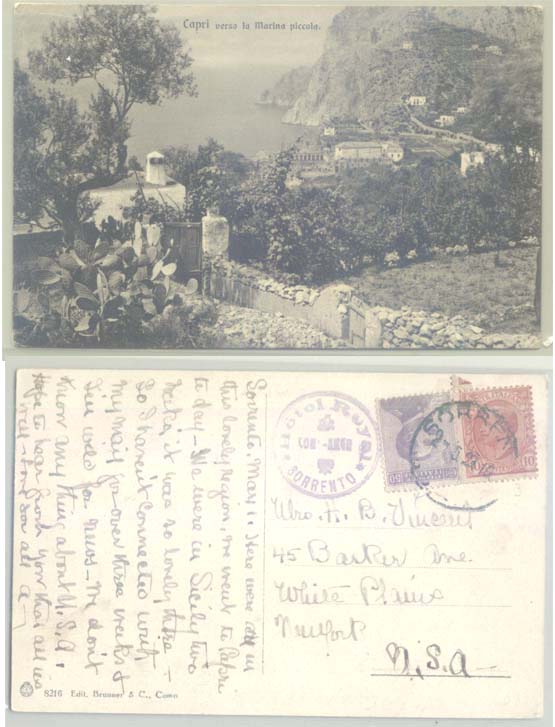 Capri verso la Marina piccola.
Sorrento, May 1. Here we're all in
this lovely region, we went to Capri
to day - We were in Sicily two
weeks, it was so lovely there -
So I haven't connected with
my mail for over three weeks &
I'm wild for news - We don't
know any thing about U.S.A.
Hope to hear from you that all is
well - and son all
Hôtel Royal
SORRENTO
SORREN
50
10
Mrs. H. B. Vincent
45 Barker Ave.
White Plains
New York
U.S.A-
8216 Edit. Brunner & C., Como